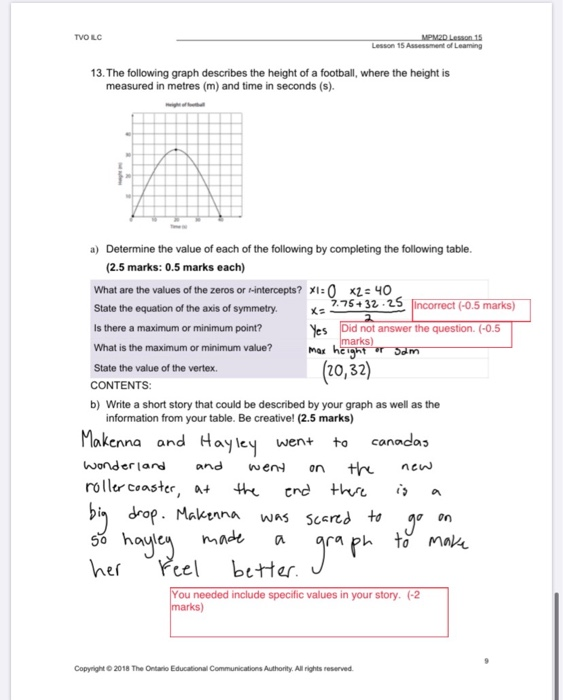 TVO ILC
MPM2D Lesson 15
Lesson 15 Assessment of Learning
13. The following graph describes the height of a football, where the height is
measured in metres (m) and time in seconds (s).
Height of football
Height (m)
40
30
20
10
0 10 20 30 40
Time (s)
a) Determine the value of each of the following by completing the following table.
(2.5 marks: 0.5 marks each)
What are the values of the zeros or r-intercepts? x1=0 x2=40
State the equation of the axis of symmetry. x= 7.75+32.25 / 2 Incorrect (-0.5 marks)
Is there a maximum or minimum point? Yes Did not answer the question. (-0.5
marks)
What is the maximum or minimum value? max height
State the value of the vertex. (20,32)
CONTENTS:
b) Write a short story that could be described by your graph as well as the
information from your table. Be creative! (2.5 marks)
Makenna and Hayley went to canadas
wonderland and went on the new
rollercoaster, at the end there is a
big drop. Makenna was scared to go on
so hayley made a graph to make
her feel better.
You needed include specific values in your story. (-2
marks)
9
Copyright © 2018 The Ontario Educational Communications Authority. All rights reserved.